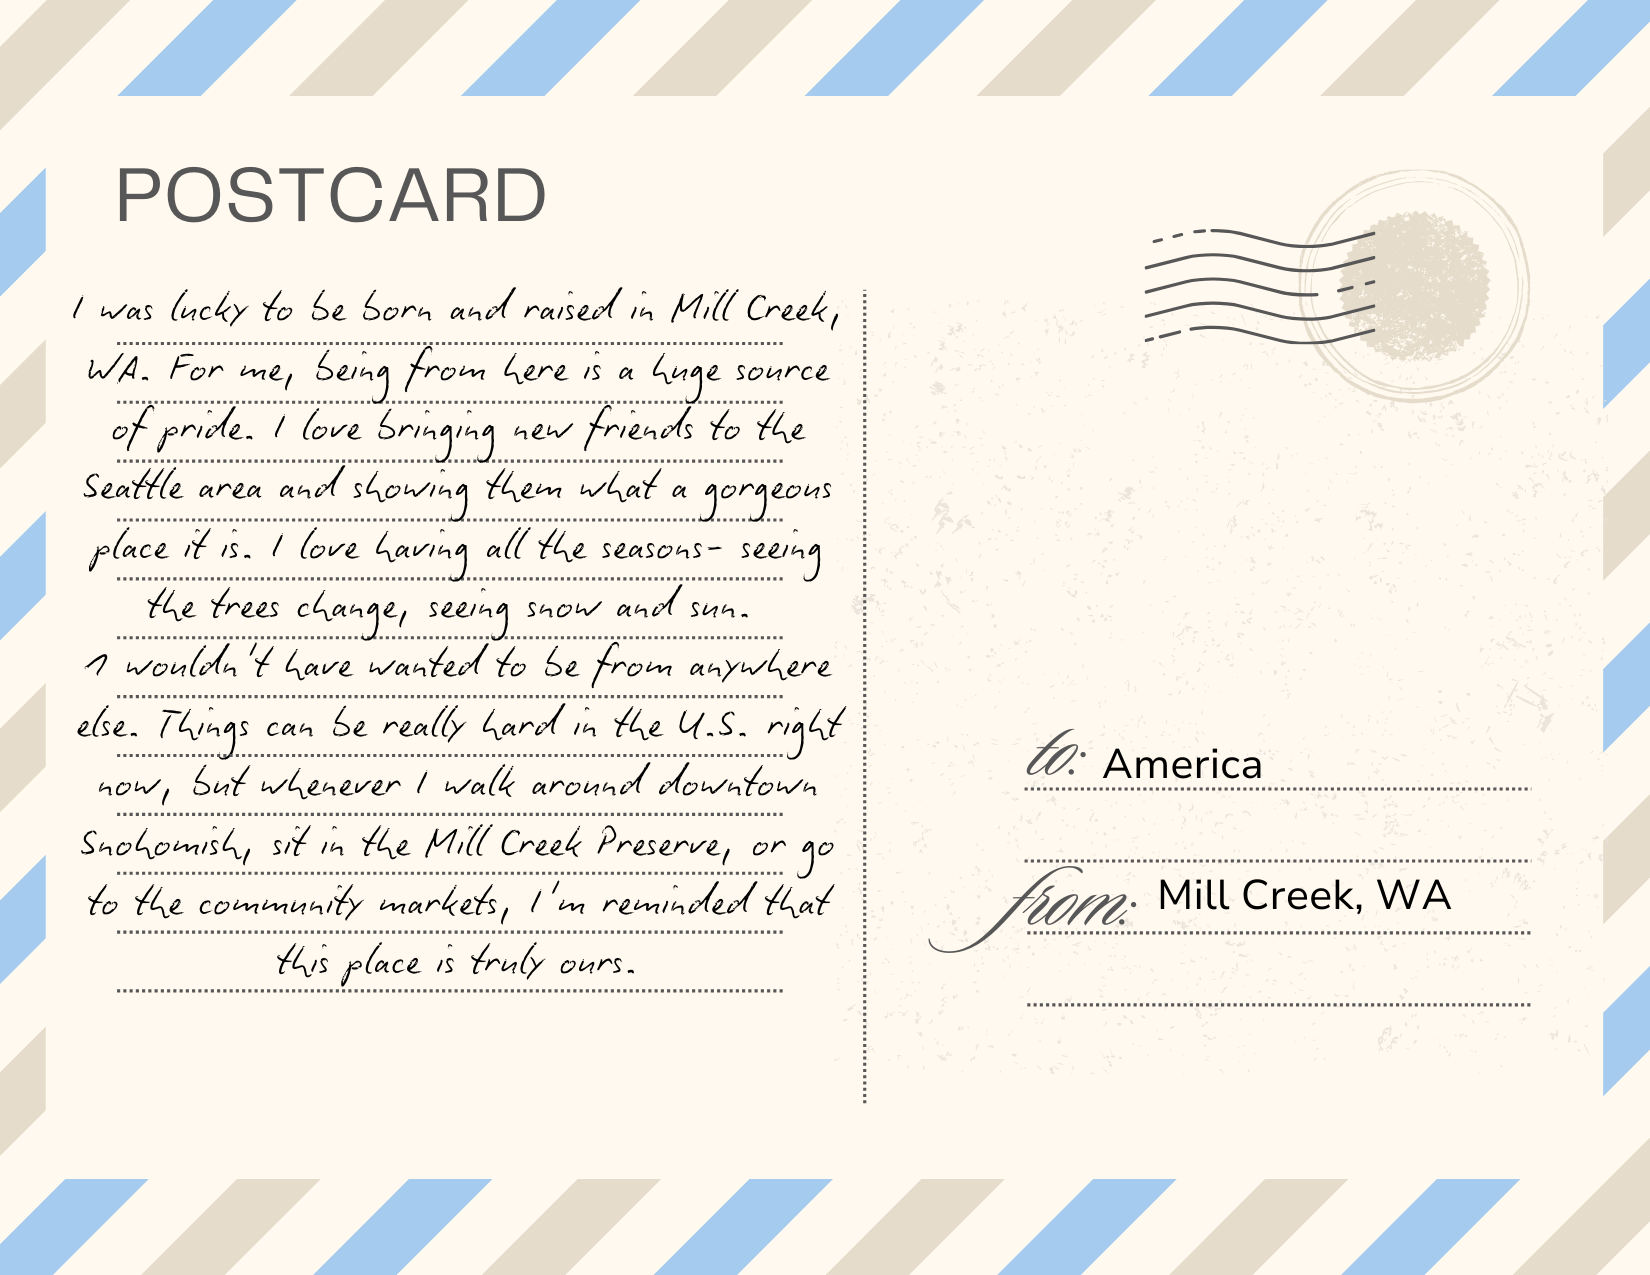 POSTCARD
I was lucky to be born and raised in Mill Creek,
WA. For me, being from here is a huge source
of pride. I love bringing new friends to the
Seattle area and showing them what a gorgeous
place it is. I love having all the seasons- seeing
the trees change, seeing snow and sun.
I wouldn't have wanted to be from anywhere
else. Things can be really hard in the U.S. right
now, but whenever I walk around downtown
Snohomish, sit in the Mill Creek Preserve, or go
to the community markets, I'm reminded that
this place is truly ours.
to: America
from: Mill Creek, WA